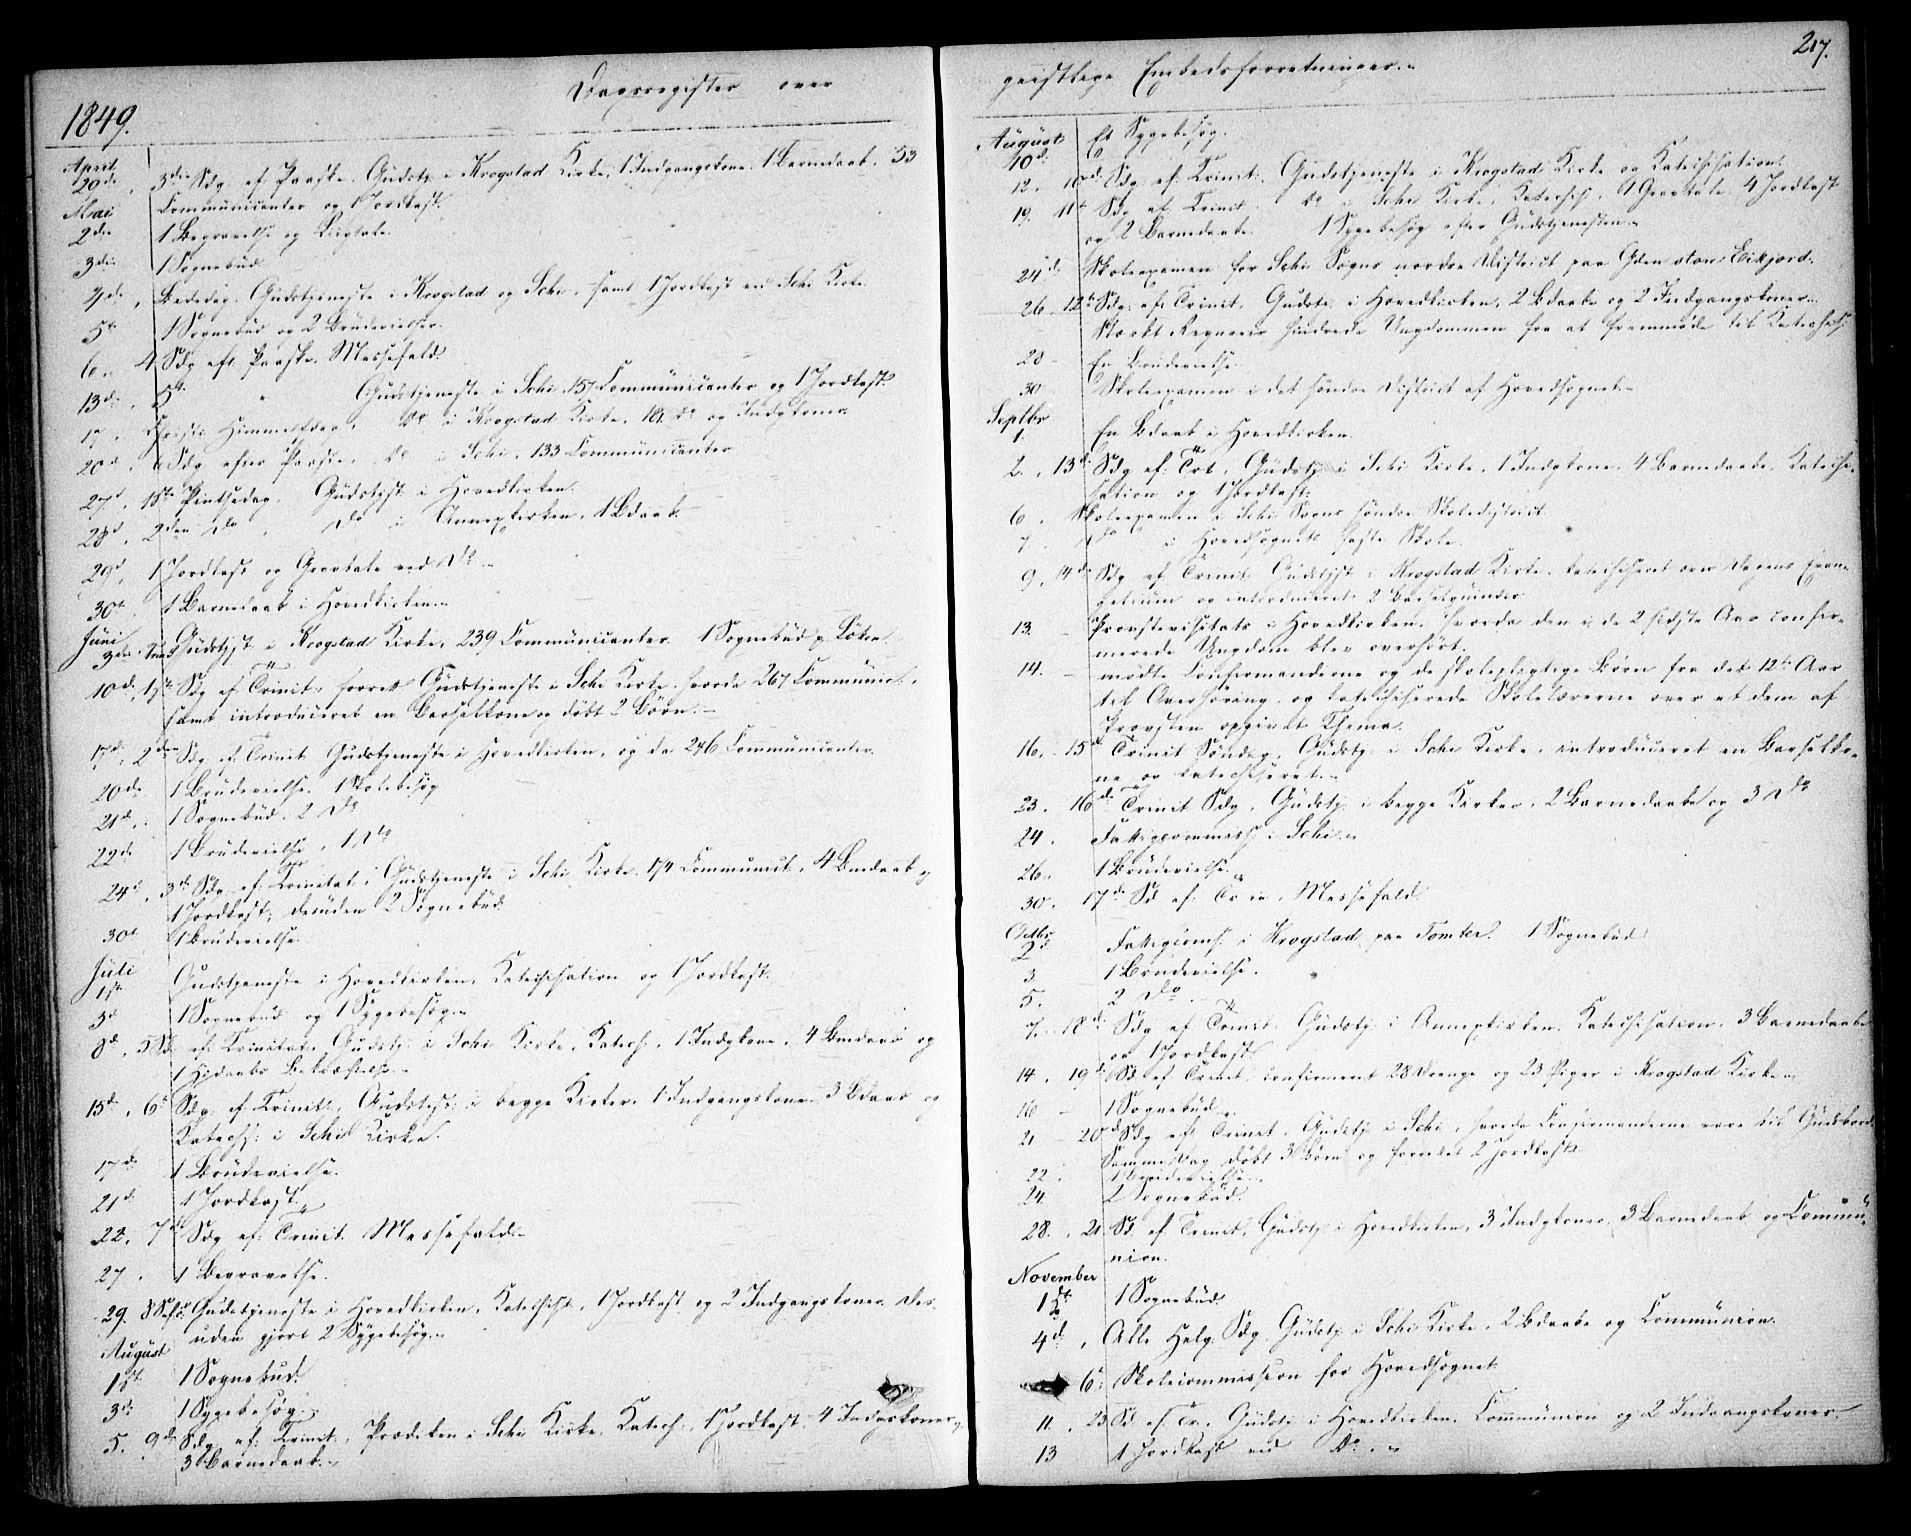 217.
Dagsregister over geistlige Embedsforretninger.
1849.
April
29de, 3die Sdg. ef. Paaske. Gudstj. i Krogstad Kirke, 1 Indgangskone. 1 Barnedaab. 53
Communicanter og 1 Jordkast.
Mai
2den 1 Begravelse og Ligtale.
3die 1 Sognebud.
4de, Bededag. Gudstjeneste i Krogstad og Schi, samt 1 Jordkast ved Schi Kirke.
5te 1 Sognebud og 2 Brudevielser.
6. 4 Sdg eft Paaske. Messefald.
13de, 5te " Gudstjeneste i Schi, 157 Communicanter og 1 Jordkast.
17, Christi Himmelfdag, Do i Krogstad Kirke, 181 Do og Indgkone.
20de, 6 Sdg efter Paaske, Do i Schi, 133 Communicanter
27de, 1ste Pintsedag. Gudstjst i Hovedkirken.
28d, 2den Do, Do i Annexkirken, 1 Bdaab.
29d, 1 Jordkast og Gravtale ved Do.
30te 1 Barnedaab i Hovedkirken.
Juni
3die Gudstjst i Krogstad Kirke, 239 Communicanter. 1 Sognebud p. Löken.
10d. 1ste Sdg ef. Trinit, forrett Gudstjeneste i Schi Kirke, hvorda 267 Communic.,
samt introduceret en Barselkone og döbt 2 Börn.
17de, 2den Sdg ef. Trinit Gudstjeneste i Hovedkirken, og da 246 Communicanter.
20de 1 Brudevielse. 1 Skolebesög
21d, 1 Sognebud, 2 Do
22de 1 Brudevielse, 1 Do
24d, 3die Sdg ef. Trinitat. Gudstjeneste i Schi Kirke, 174 Communicit, 4 Bnedaab og
1 Jordkast; desuden 2 Sognebud.
30te 1 Brudevielse.
Juli
1ste Gudstjeneste i Hovedkirken, Katechisation og 1 Jordkast.
3d 1 Sognebud og 1 Sygebesög.
8d, 5 Sd. ef. Trinitat. Gudstj. i Schi Kirke, Katech., 1 Indgkone, 4 Bnedaab og
1 Hjdaabs Bekræftelse.
15de, 6te Sdg. ef. Trinit., Gudstjst. i begge Kirker, 1 Indgangskone 3 Bdaab og
Katechs: i Schi Kirke.
17de 1 Brudevielse.
21d. 1 Jordkast.
22, 7de Sdg ef. Trinit. Messefald.
27. 1 Begravelse.
29. 8 Gudstjeneste i Hovedkirken, Katechist, 1 Jordkast og 2 Indgangskoner. Des
uden gjort 2 Sygebesög.
August
1ste 1 Sognebud.
3de 1 Sygebesög.
5. 9de Sdg ef. Trinit., Prædiken i Schi Kirke, Katech., 1 Jordkast, 4 Indgskoner og
3 Barnedaab.
August
10de Et Sygebesög.
12. 10d. Sdg. ef. Trinit. Gudstjeneste i Krogstad Kirke og Katechisation.
19. 11te Sdg ef. Trinit. Do i Schi Kirke, Katechis, 1 Gravtale 4 Jordkast
og 2 Barnedaabe. 1 Sygebesög efter Gudstjenesten.
24d. Skoleexamen for Schi Sogns nordre District paa Gden stor Eikjord.
26. 12te Sdg. ef. Trinit, Gudstj. i Hovedkirken, 2 Bdaabe og 2 Indgangskoner.
Stærkt Regnveir hindrede Ungdommen fra at fremmöde til Katechis.
28 En Brudevielse.
30 Skoleexamen i det söndre District af Hovedsognet.
Septbr
1. En Bdaab i Hovedkirken.
2. 13de Sdg ef: Trt, Gudstj. i Schi Kirke, 1 Indgkone, 4 Barnedaabe, Kateche-
sation og 1 Jordkast.
6. Skoleexamen i Schi Sogns söndre Skoledistrict
7. Do i Hovedsognets faste Skole.
9. 14de Sdg ef Trinit Gudstjst i Krogstad Kirke katechiseret over Dagens Evan-
gelium og introduceret 2 Barselqvinder
13. Provstevisitats i Hovedkirken, hvorda den i de 2 sidste Aar confir-
merede Ungdom blev overhört.
14. mödte Confirmanderne og de skolepligtige Börn fra det 12te Aar
til Overhöring, og katechiserede Skolelærerne over et dem af
Provsten opgivet Thema.
16. 15d Trinit Söndag, Gudstj. i Schi Kirke, introduceret en Barselko-
ne og katechiseret.
23. 16d. Trinit Sdg, Gudstj. i begge Kirker, 2 Barnedaabe og 3 Do
24. Fattigcommiss: i Schi.
26. 1 Brudevielse.
30. 17de Sd ef. Trin. Messefald.
Octbr
2d Fattigcoms. i Krogstad paa Tomter. 1 Sognebud
3 1 Brudevielse.
5. 2 Do.
7. 18de Sdg ef Trinit. Gudstj i Annexkirken. Katechisation. 3 Barnedaabe
og 1 Jordkast
14. 19d. Sd ef Trinit. confirmeret 28 Drenge og 23 Piger i Krogstad Kirke.
16 1 Sognebud.
21 20d Sdg eft Trinit, Gudstj i Schi, hvorda Confirmanderne vare til Gudsbord
Samme Dag döbt 3 Börn og forrettet 2 Jordkast
22. 1 Brudevielse.
24. 2 Sognebud.
28., 21 Sd. ef Trinit, Gudstj i Hovedkirken, 3 Indgkoner, 3 Barnedaab og Commu-
nion.
November
1ste 1 Sognebud.
4d, Alle Helg. Sdg, Gudstj i Schi Kirke, 2 Bdaabe og Communion.
6. Skolecommission for Hovedsognet
11. 23 Sd ef. Tr. Gudstj i Hovedkirken. Communion og 2 Indgangskoner.
13 1 Jordkast ved Do.